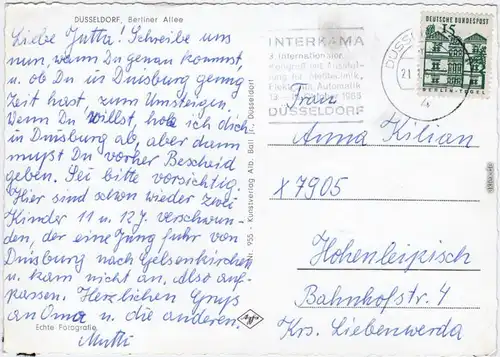 DÜSSELDORF, Berliner Allee
Liebe Jutta! Schreibe uns
nun, wann Du genau kommst,
u. ob Du in Duisburg genug
Zeit hast, zum Umsteigen.
Wenn Du willst, hole ich dich
in Duisburg ab, aber dann
mußt Du vorher Bescheid
geben. Sei bitte vorsichtig.
Hier sind schon wieder zwei
Kinder 11 u. 12 J. verschwun-
den, der eine Jung fuhr von
Duisburg nach Gelsenkirchen
u. kam nicht an. Also auf-
passen. Herzlichen Gruß
an Oma u. die anderen.
Echte Fotografie
Mutti
Nr. 955 - Kunstverlag Alb. Ball jr., Düsseldorf
INTERKAMA
3. Internationaler
Automatik
1965
DÜSSELDORF
DÜSS
21
4
DEUTSCHE BUNDESPOST
15
BERLIN-TEGEL
Frau
Anna Kilian
X 7905
Hohenleipisch
Bahnhofstr. 4
Krs. Liebenwerda